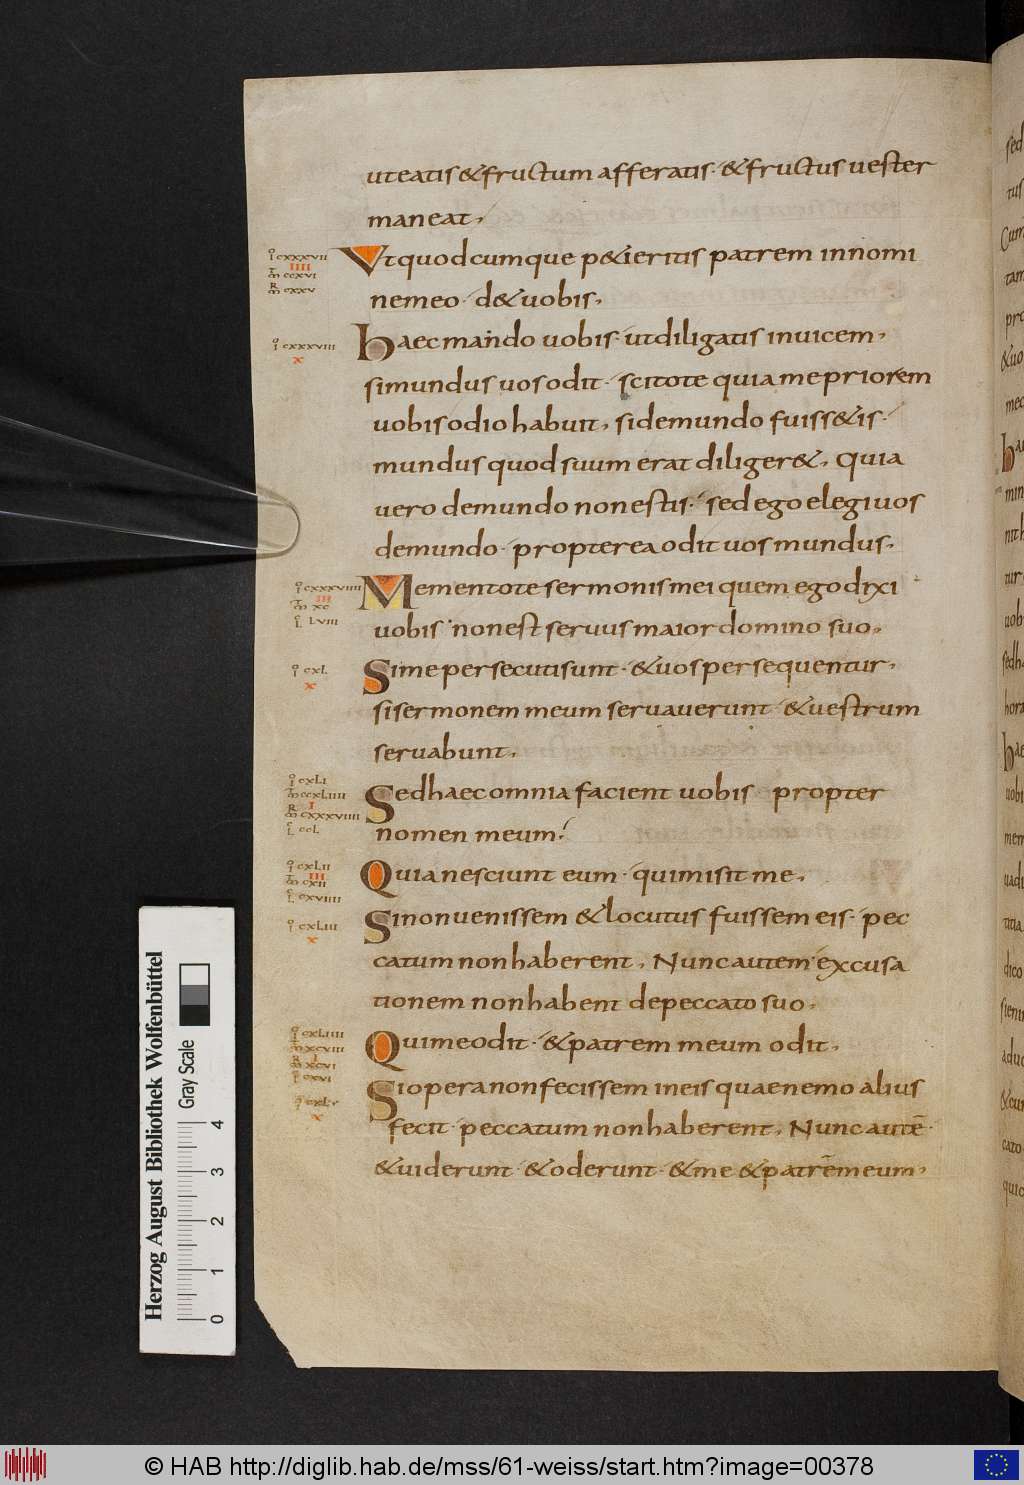 uteatis & fructum afferatis· & fructus uester
maneat,
Ut quodcumque p&ieritis patrem in nomi
ne meo· d& uobis,
Haec mando uobis· ut diligatis inuicem,
si mundus uos odit· scitote quia me priorem
uobis odio habuit, si de mundo fuiss&is·
mundus quod suum erat diliger&, Quia
uero de mundo non estis· sed ego elegi uos
de mundo· propterea odit uos mundus,
Mementote sermonis mei quem ego dixi
uobis· non est seruus maior domino suo,
Si me persecuti sunt· & uos persequentur,
si sermonem meum seruauerunt· & uestrum
seruabunt,
Sed haec omnia facient uobis propter
nomen meum·
Quia nesciunt eum· qui misit me,
Si non uenissem & locutus fuissem eis· pec
catum non haberent, Nunc autem excusa
tionem non habent de peccato suo,
Qui me odit· & patrem meum odit,
Si opera non fecissem in eis quae nemo alius
fecit· peccatum non haberent, Nunc autē·
& uiderunt· & oderunt· & me & patrē meum,
CXXXVII
IIII
CCXVI
CXXV
CXXXVIII
X
CXXXVIIII
III
XC
LVIII
CXL
X
CXLI
CCXLIIII
I
CXXXVIIII
CCL
CXLII
III
CXII
CXVIIII
CXLIII
X
CXLIIII
XCVIII
I
XCVI
CXVI
X
Herzog August Bibliothek Wolfenbüttel
Gray Scale
0 1 2 3 4
© HAB http://diglib.hab.de/mss/61-weiss/start.htm?image=00378